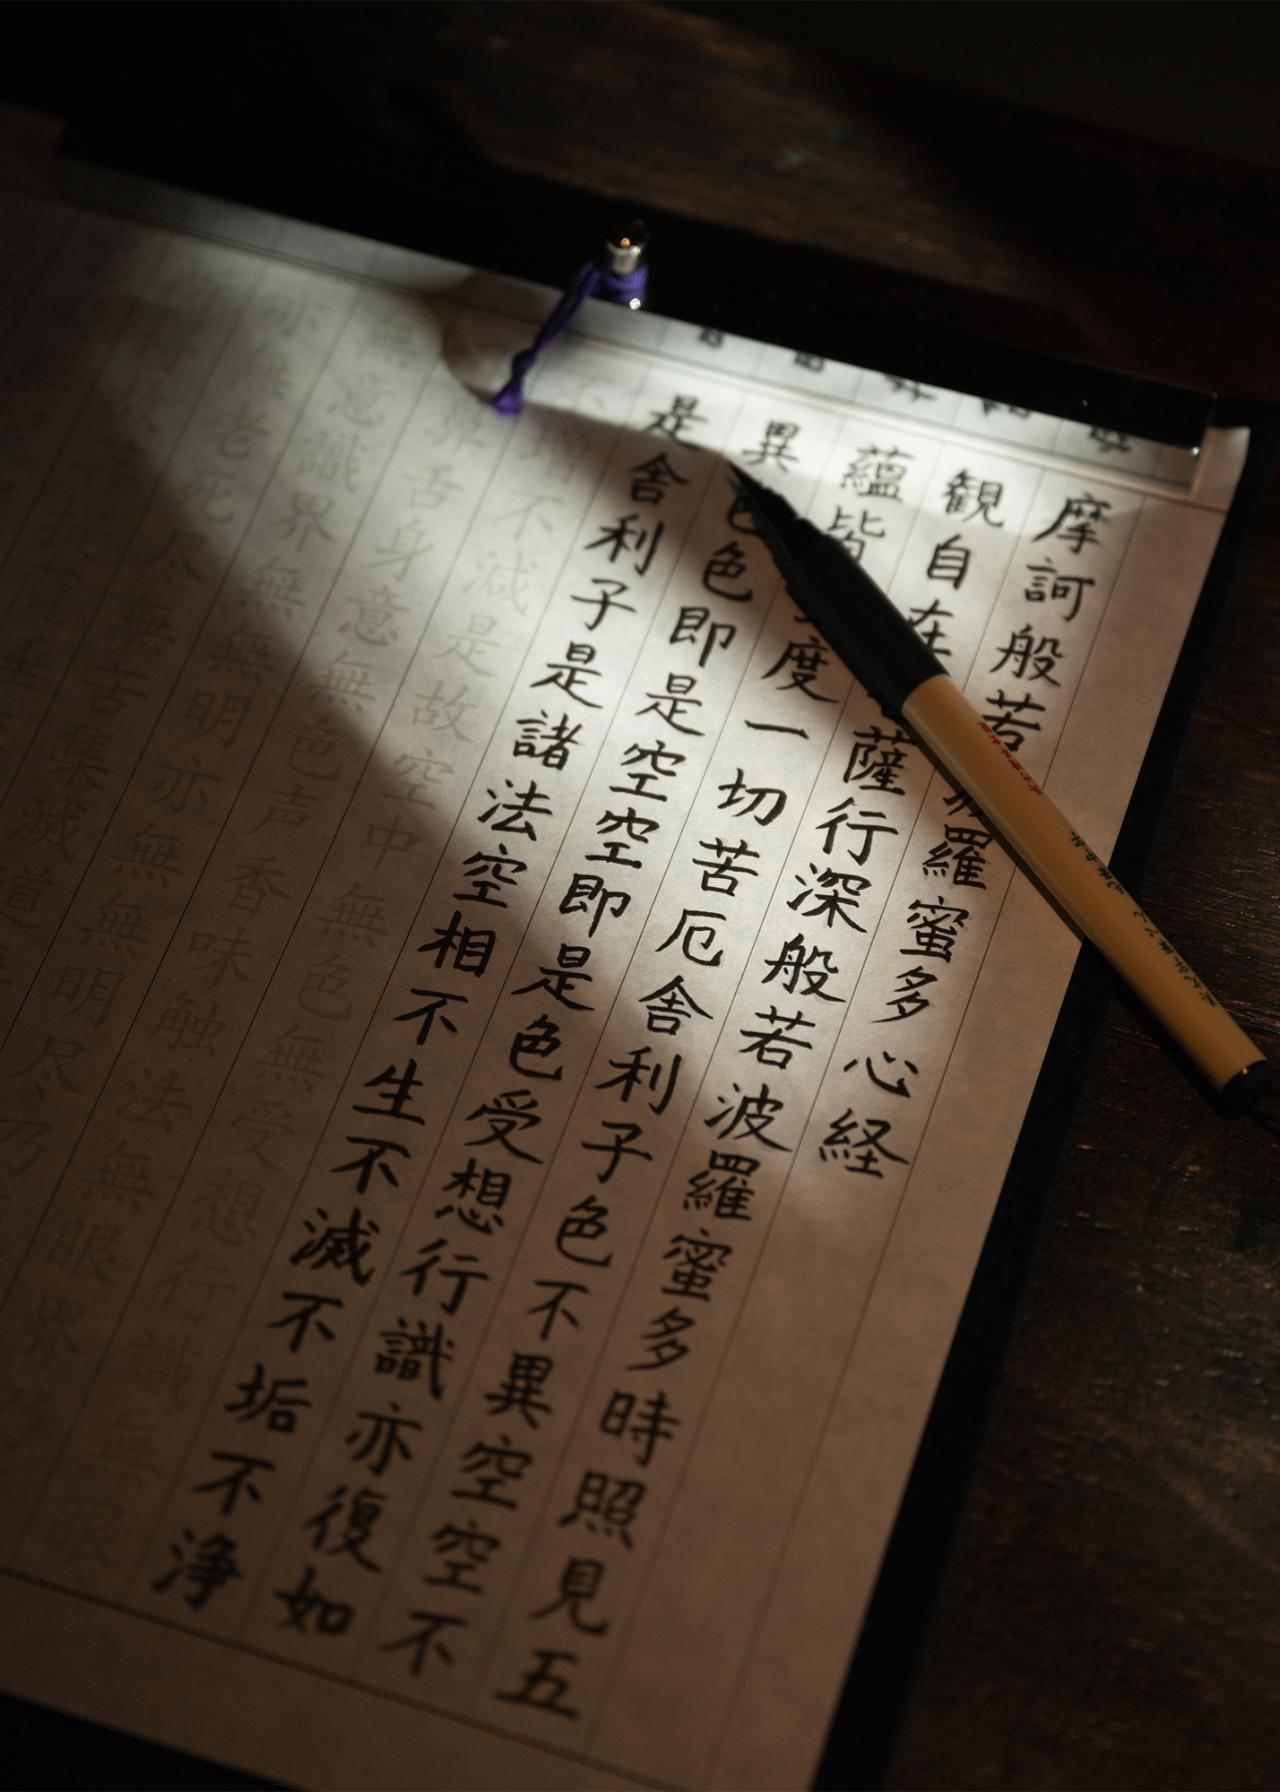 摩訶般若波羅蜜多心経
観自在菩薩行深般若波羅蜜多時照見五
蘊皆度一切苦厄舎利子色不異空空不
異色色即是空空即是色受想行識亦復如
是舎利子是諸法空相不生不滅不垢不浄
不増不減是故空中無色無受想行識無眼
鼻舌身意無色声香味触法無眼界乃
無意識界無無明亦無無明尽乃
亦無老死尽無苦集滅道
得故菩提薩埵